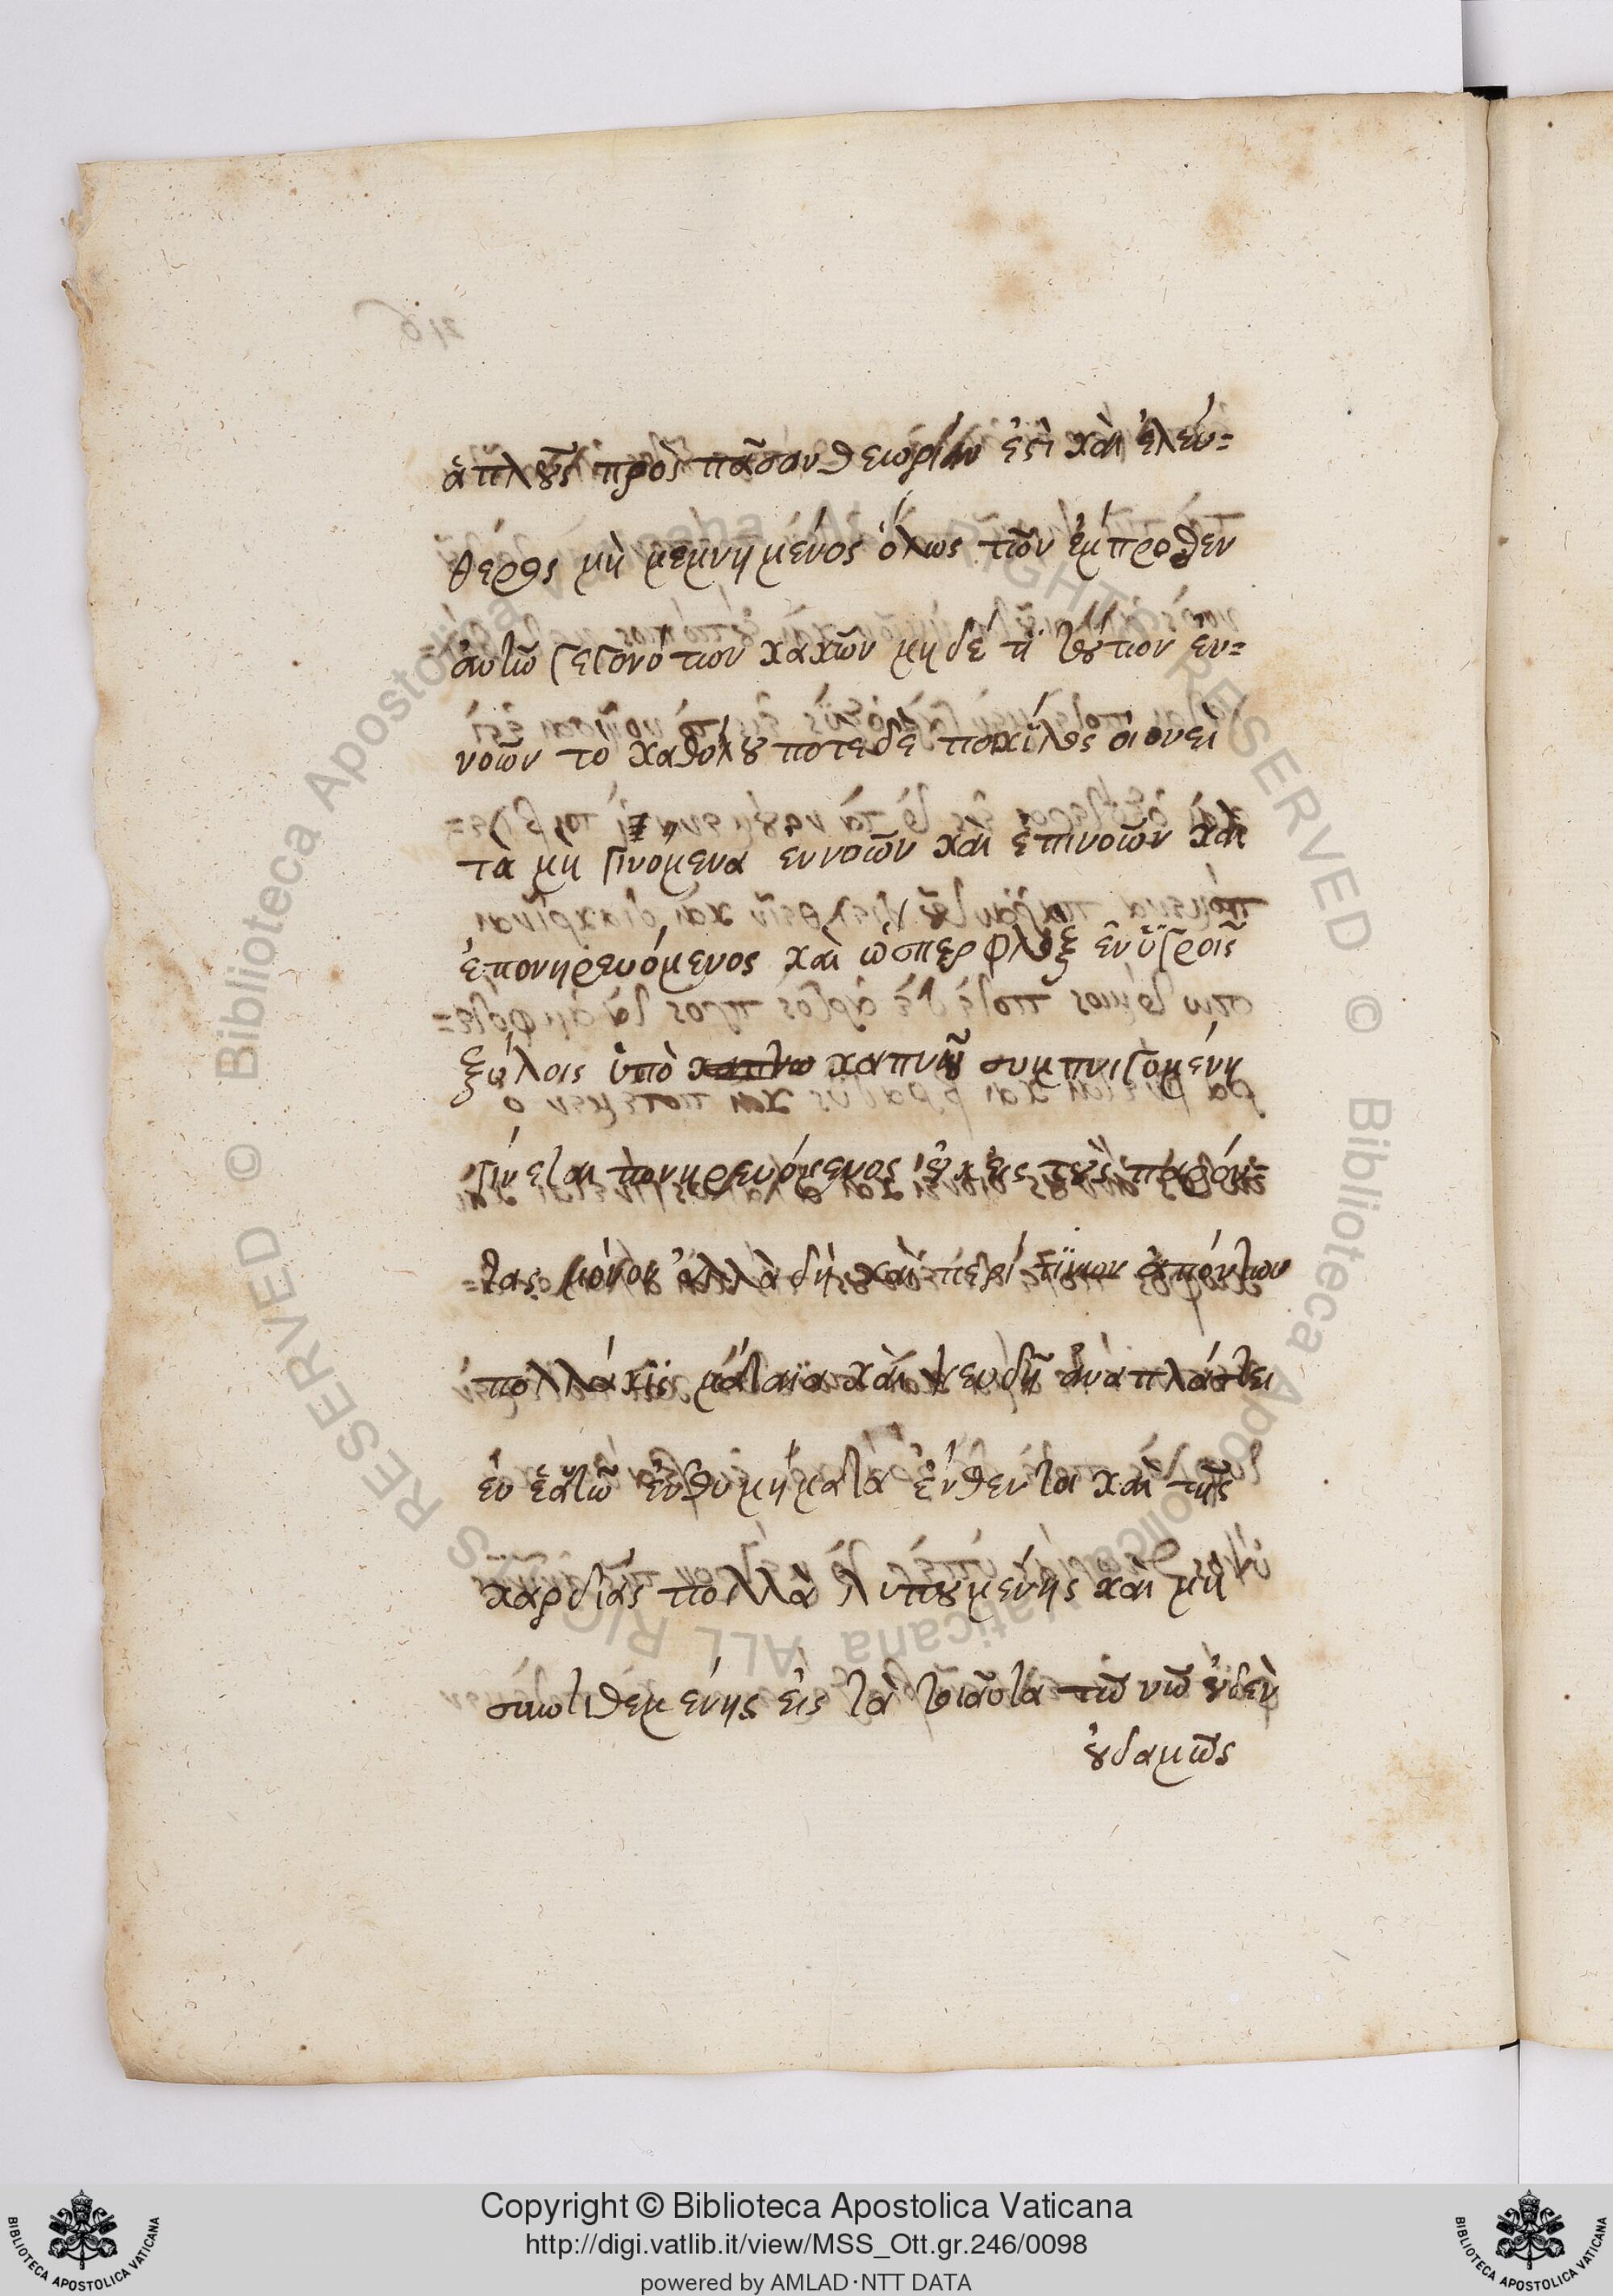 ἁπλοῦς πρὸς πᾶσαν θεωρίαν ἐστὶ καὶ ἐλεύ=
θερος μὴ μεμνημένος ὅλως τῶν ἔμπροσθεν
αὐτῶ γεγονότων κακῶν μηδέ τι τούτων ἐν=
νοῶν το καθόλου ποτε δὲ ποικίλος οἱονεὶ
τὰ μὴ γινόμενα ἐννοῶν καὶ ἐπινοῶν καὶ
ἐπονηρευόμενος καὶ ὥσπερ φλὸξ ἐν ὑγροῖς
ξύλοις ὑπὸ καπνοῦ συμπνιγομένη
γίνεται πονηρευόμενος οὐκ εἰς τοὺς παρόν=
τας μόνον ἀλλὰ δὴ καὶ περί τινων ἀπόντων
πολλάκις μάταια καὶ ψευδῆ ἀναπλάττει
ἐν ἑαυτῶ ἐνθυμήματα ἔνθεν τοι καὶ τῆς
καρδίας πολλὰ λυπουμένης καὶ μὴ
συντιθεμένης εἰς τὰ τοιαῦτα τῶ νῶ οὐδὲν
οὐδαμῶς
Copyright © Biblioteca Apostolica Vaticana
http://digi.vatlib.it/view/MSS_Ott.gr.246/0098
powered by AMLAD·NTT DATA
BIBLIOTECA APOSTOLICA VATICANA
BIBLIOTECA APOSTOLICA VATICANA